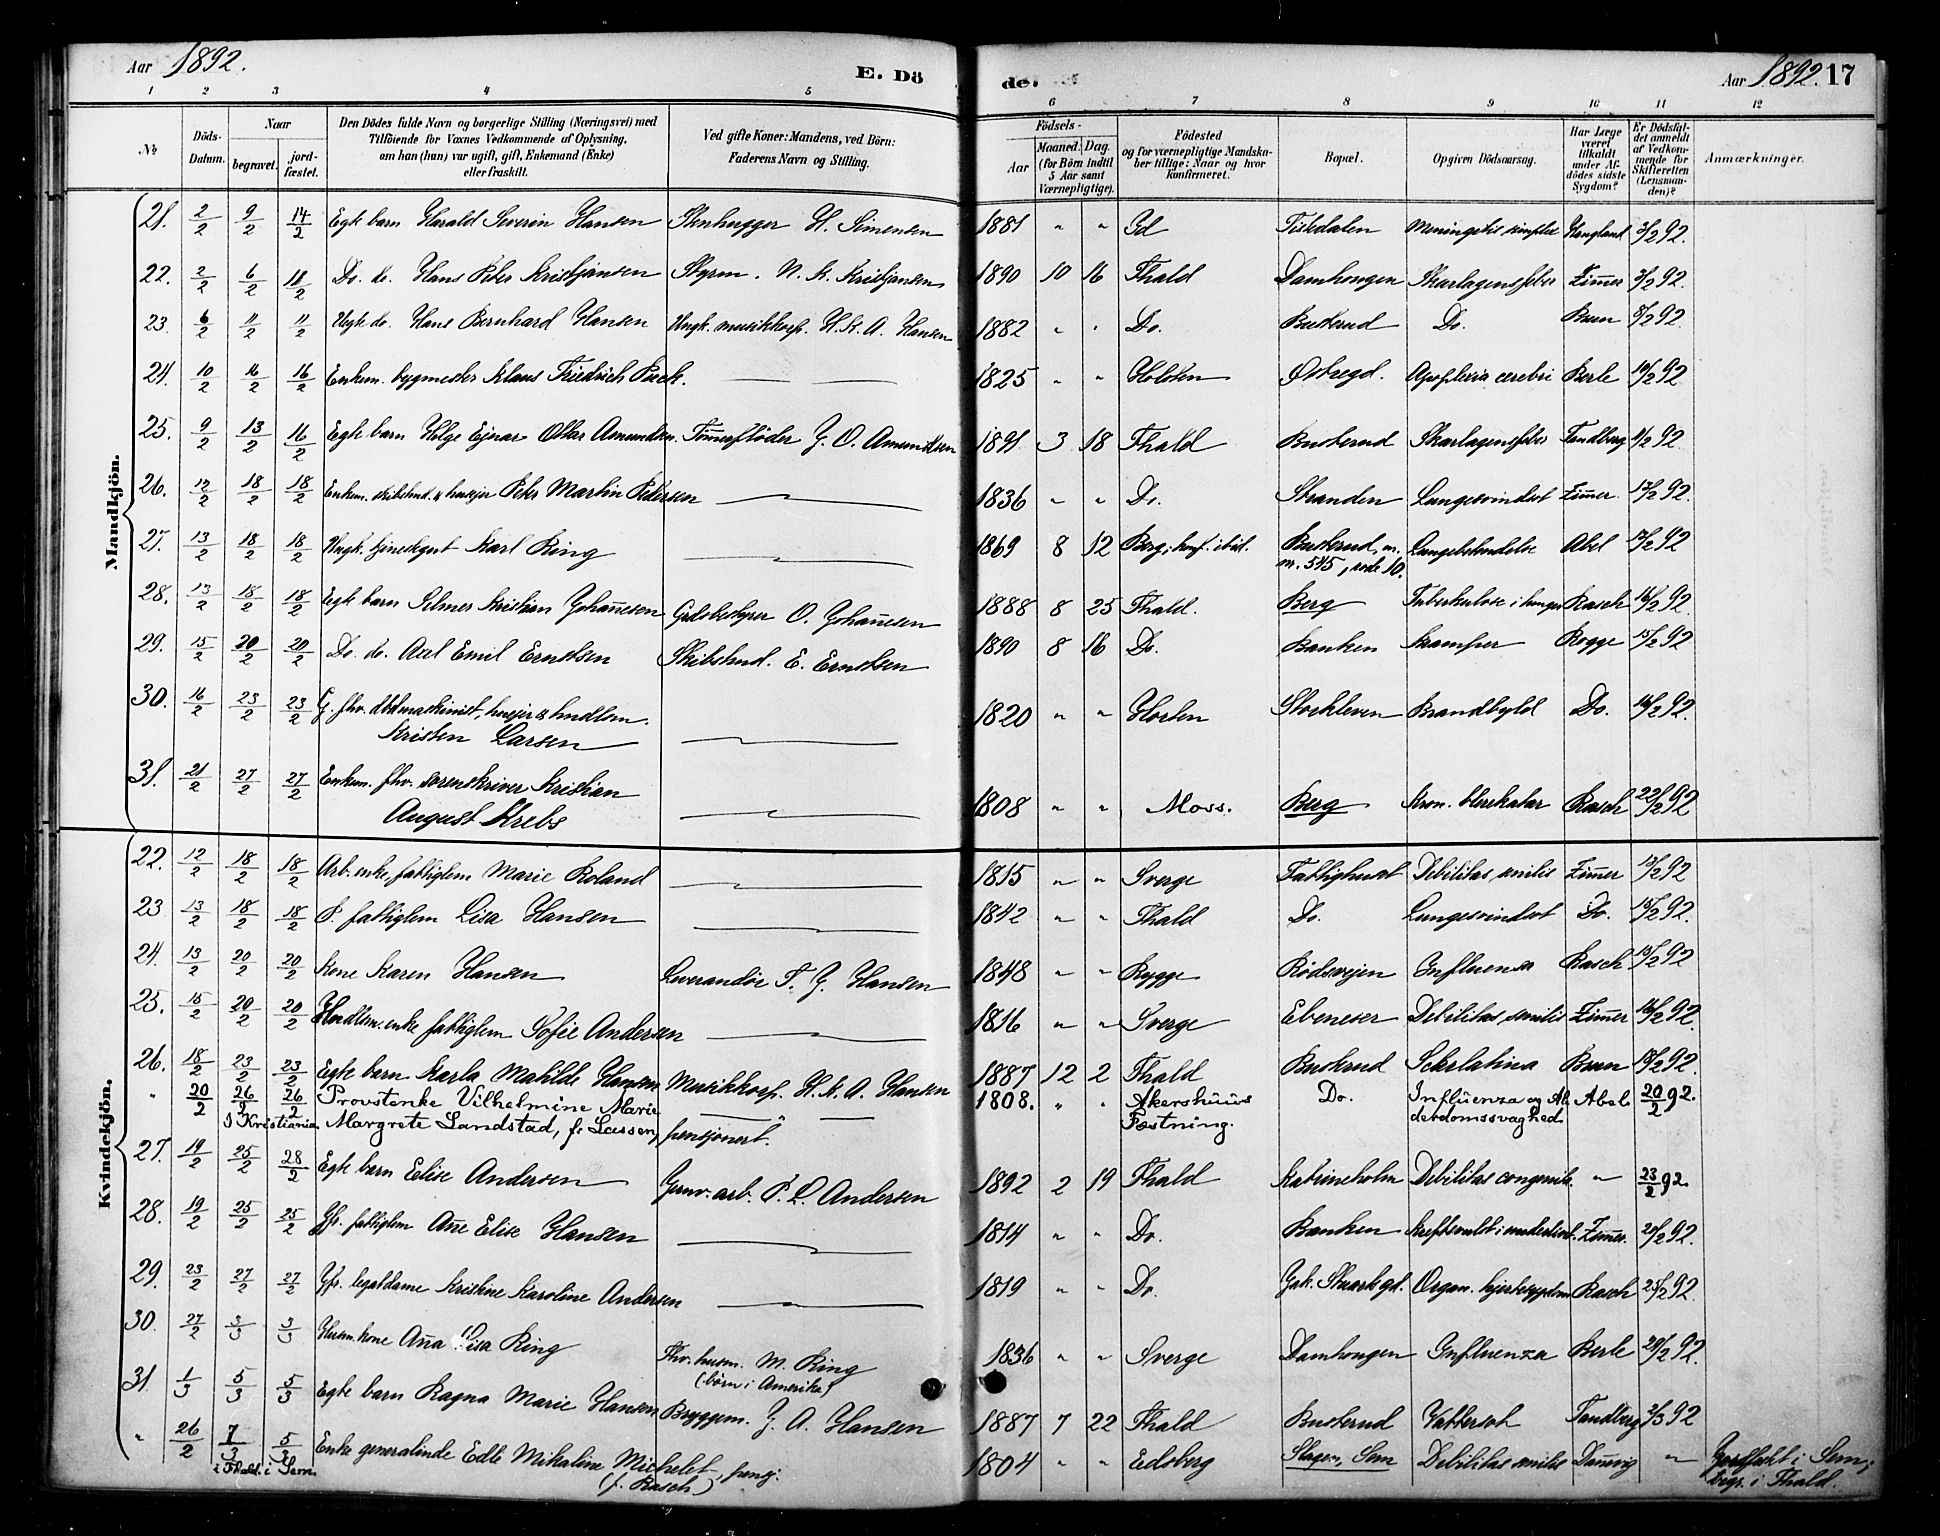 Aar 1892.
E. Dö
de.
Aar 1892. 17
1 2 3 4 5 6 7 8 9 10 11 12
№
Döds-Datum.
Naar
begravet.
jord-fæstet.
Den Dödes fulde Navn og borgerlige Stilling (Næringsvei) med
Tilföiende for Voxnes Vedkommende af Oplysning,
om han (hun) var ugift, gift, Enkemand (Enke)
eller fraskilt.
Ved gifte Koner: Mandens, ved Börn:
Faderens Navn og Stilling.
Födsels-
Aar
Maaned. Dag.
(for Börn indtil
5 Aar samt
Værnepligtige).
Födested
og for værnepligtige Mandska-
ber tillige: Naar og hvor
konfirmeret.
Bopæl.
Opgiven Dödsaarsag.
Har Læge
været
tilkaldt
under Af-
dödes sidste
Sygdom?
Er Dödsfal-
det anmeldt
af Vedkom-
mende for
Skifteretten
(Lensman-
den)?
Anmærkninger.
Mandkjön.
21. 2/2 9/2 14/2 Egte barn Harald Severin Hansen Stenhugger H. Simensen 1881 " " Id Tistedalen Meningitis simplex Haugland 3/2 92.
22. 2/2 6/2 18/2 Do. do. Hans Peter Kristjansen Styrm. N. K. Kristjansen 1890 10 16 Fhald Damhougen Skarlagensfeber Zimer 3/2 92.
23. 6/2 11/2 11/2 Uegte do. Hans Bernhard Hansen Ungk. musikkorp. H. K. A. Hansen 1882 " " Do. Buskrud Do. Buen 8/2 92.
24. 10/2 16/2 16/2 Enkem. bygmester Klaus Friedrich Puck. 1825 " " Holsten Ostregd. Apoplexia cerebri Berle 10/2 92
25. 9/2 13/2 16/2 Egte barn Helge Ejnar Ottar Amundsen. Tømerfløder J. O. Amundsen 1891 3 18 Fhald Buskrud Skarlagensfeber Tandberg 11/2 92.
26. 12/2 18/2 18/2 Enkem. skibstmd. & husejer Peter Martin Petersen 1836 " " Do. Stranden Lungesvindsot Zimer. 13/2 92.
27. 13/2 18/2 18/2 Ungk. tjenestegut Karl Ring 1869 8 12 Berg; konf. ibid. Buskrud, m.
nr. 545, rode 10. Lungebetendelse Abel 17/2 92
28. 13/2 18/2 18/2 Egte barn Selmer Kristian Johañesen Grdsbestyrer O. Johañesen 1888 8 25 Fhald. Berg Tuberkulose i lunger Rasch 16/2 92
29. 15/2 20/2 20/2 Do. do. Axel Emil Erntsen Skibstmd. E. Erntsen 1890 8 16 Do. Banken Kramper Rogge 15/2 92
30. 16/2 23/2 23/2 G. fhv. dbdmaskinist, husejer & hndlsm.
Kristen Larsen 1820 " " Horten Storkleven Brandbyld Do. 16/2 92.
31. 21/2 27/2 27/2 Enkem. fhv. sorenskriver Kristian
August Krebs 1808 " " Moss. Berg Kron. blærekatar Rasch 22/2 92
Kvindekjön.
22. 12/2 18/2 18/2 Arb. enke, fattiglem Marie Roland 1815 " " Sverge Fattighuset Debilitas senilis Zimer 13/2 92
23 13/2 18/2 18/2 P. fattiglem Lisa Hansen 1842 " " Fhald Do. Lungesvindsot Do. 15/2 92.
24. 13/2 20/2 20/2 Kone Karen Hansen Leverandör T. J. Hansen 1848 " " Rygge Rødsvejen Influensa Rasch 15/2 92
25. 15/2 20/2 20/2 Hndlsm. enke fattiglem Sofie Andersen 1816 " " Sverge Ebeneser Debilitas senilis Zimer 16/2 92.
26. 18/2 23/2 23/2 Egte barn Karla Mathilde Hansen Musikkorp. H. K. A. Hansen 1887 12 2 Fhald Buskrud Scharlatina Buen 18/2 92.
" 20/2 26/2 26/2 Provstenke Vilhelmine Marie 1808. " " Akershuus Do. Influenza og Al- Abel 20/2 92.
I Kristiania Margrete Landstad, f. Lassen, pensjonert. Fæstning. derdomssvaghed.
27. 19/2 25/2 28/2 Egte barn Elise Andersen Jernv. arb. P. L. Andersen 1892 2 19 Fhald Katrineholm Debilitas congenita. " 23/2 92.
28. 19/2 25/2 25/2 Jfr. fattiglem Añe Elise Hansen 1814 " " Do. Banken Kræftsvulst i underlivet. Zimer. 20/2 92.
29. 23/2 27/2 27/2 Jfr. legatdame Kristine Karoline Andersen 1819 " " Do. Jak. Stuarts gd. Organ. hjertesygdom Rasch 25/2 92.
30. 27/2 3/3 3/3 Husm. kone Aña Lisa Ring Fhv. husm. M. Ring
(børn i Amerika) 1836 " " Sverge Damhougen Influenza Berle 29/2 92.
31. 1/3 5/3 5/3 Egte barn Ragna Marie Hansen Bryggem. J. A. Hansen 1887 7 22 Fhald Buskrud Vattersot Tandberg 2/3 92
" 26/2 7/3 5/3 Enke generalinde Edle Mikaline Michelet, pensj. 1804 " " Eidsberg Slagen, Sem Debilitas senilis Danevig " Jordfæstet i Sem;
i Fhald. i Sem. (f. Rasch) begr. i Fhald.